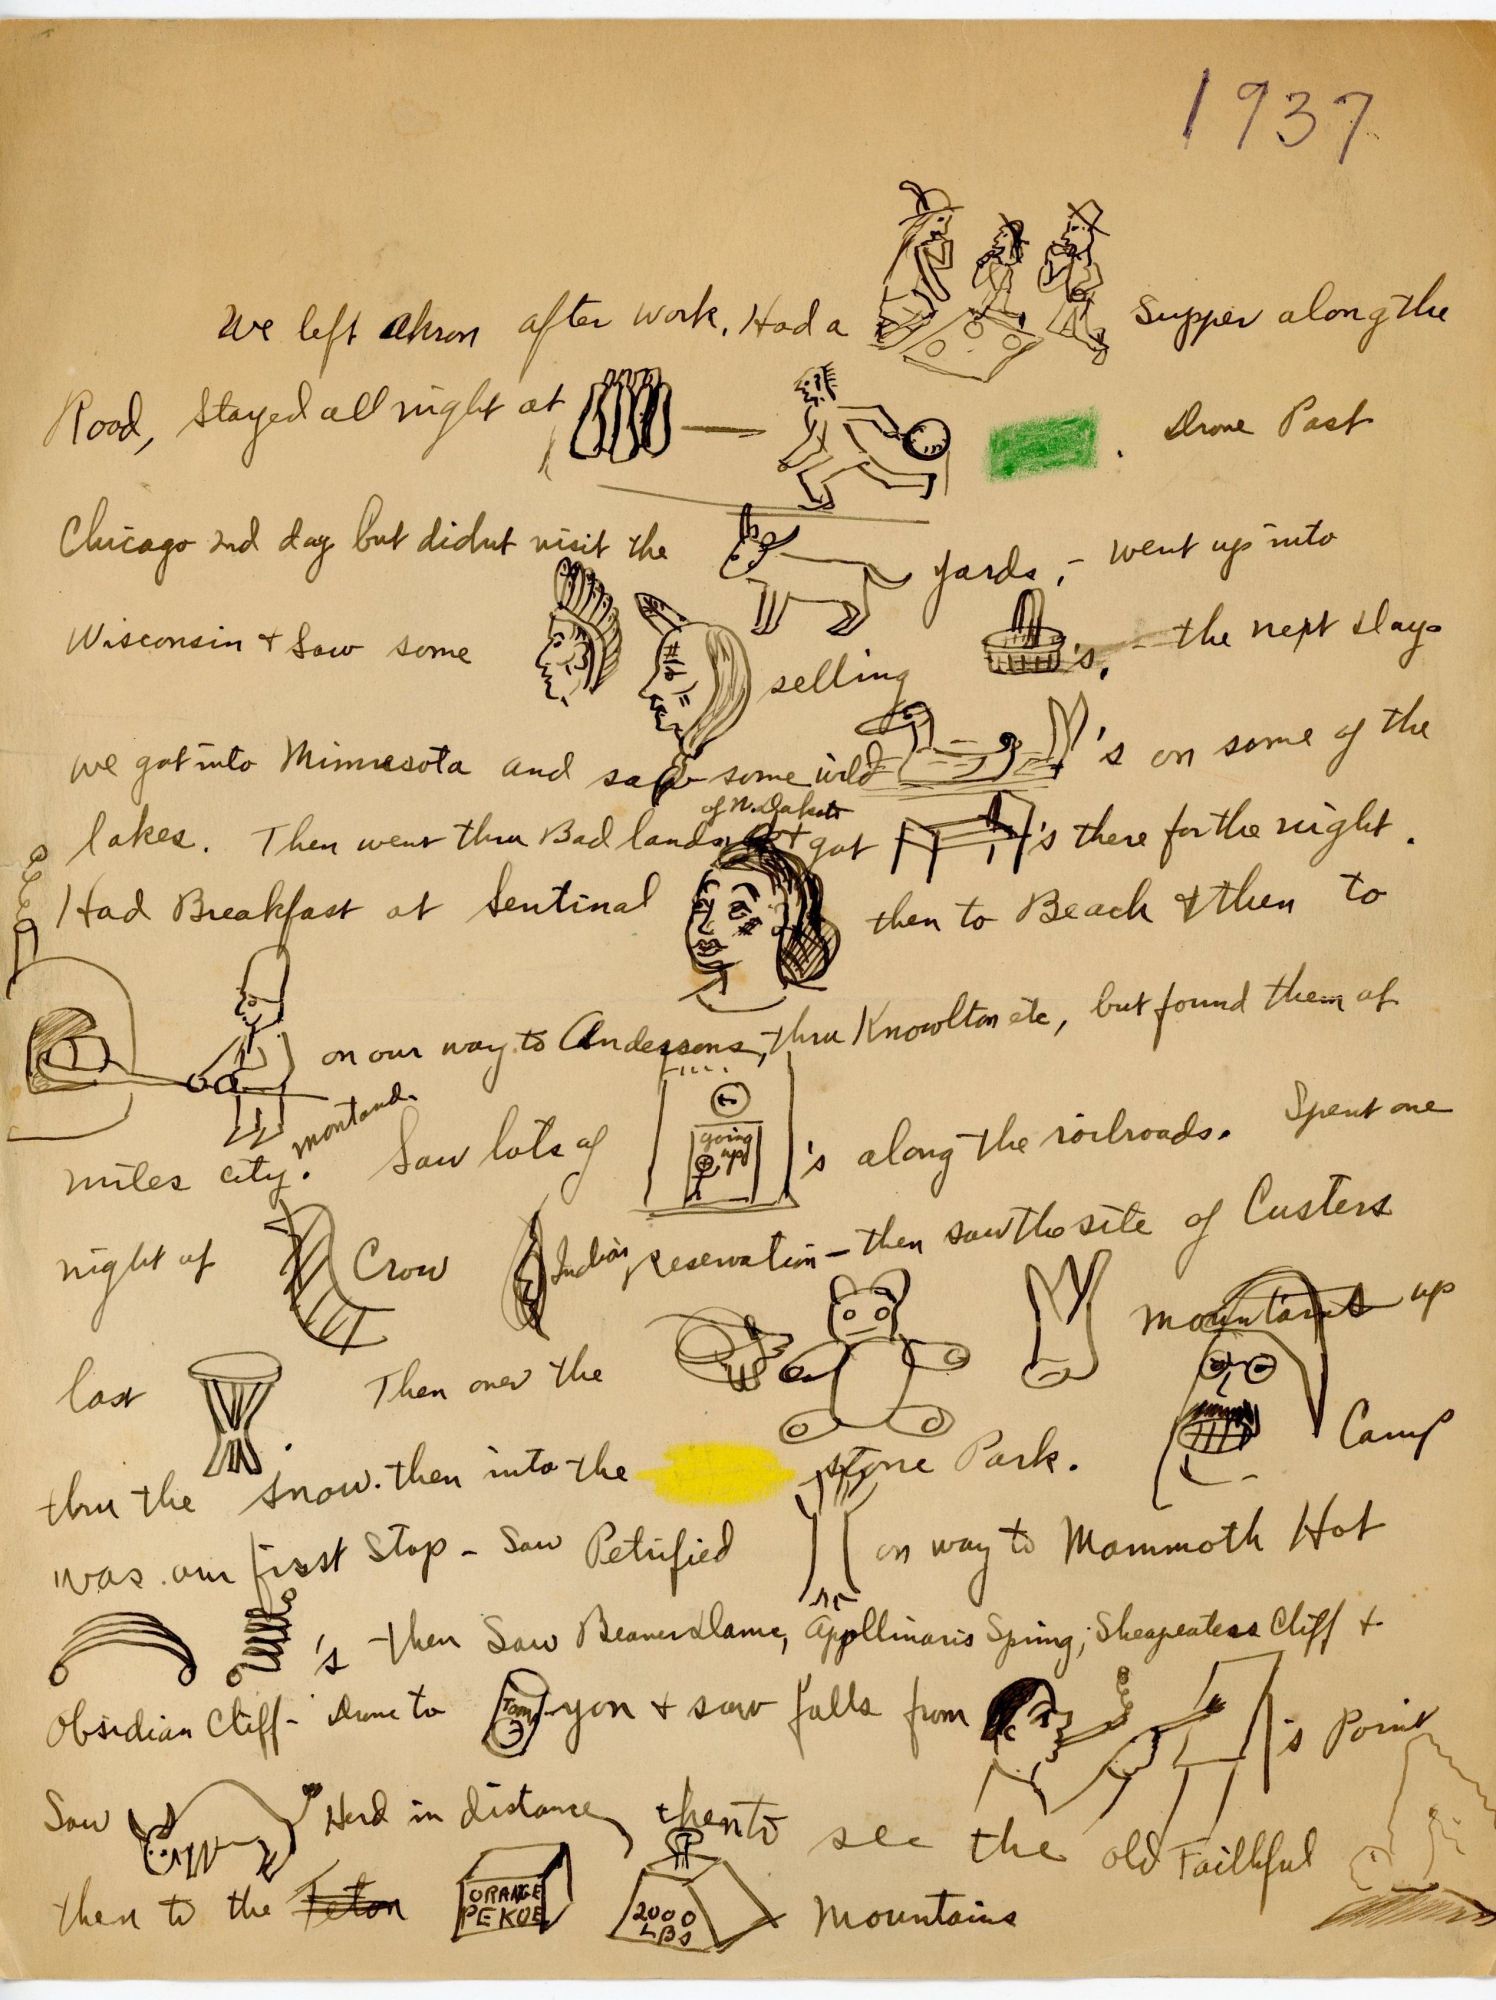 1937
We left Akron after work. Had a Supper along the
Road, Stayed all night at — . Drove Past
Chicago 2nd day but didnt visit the yards, - went up into
Wisconsin + Saw some selling 's, - the next day
we got into Minnesota and saw some wild 's on some of the
lakes. Then went thru Bad lands of N. Dakota + got 's there for the night.
Had Breakfast at Sentinal then to Beach + then to
on our way to Andersons, thru Knowlton etc, but found them at
miles city. Montana. Saw lots of going up 's along the railroads. Spent one
night at Crow Indian Reservation - then saw the site of Custers
last Then over the mountains up
thru the snow. then into the stone Park. Camp
was our first Stop - Saw Petrified on way to Mammoth Hot
's then Saw Beaverdams, Appllinaris Spring, Sheapeaters Cliff +
Obsidian Cliff - Drove to Tom yon + saw falls from is Point
Saw Herd in distance, then to see the old Faithful
then to the Teton ORANGE PEKOE 2000 LBS Mountains